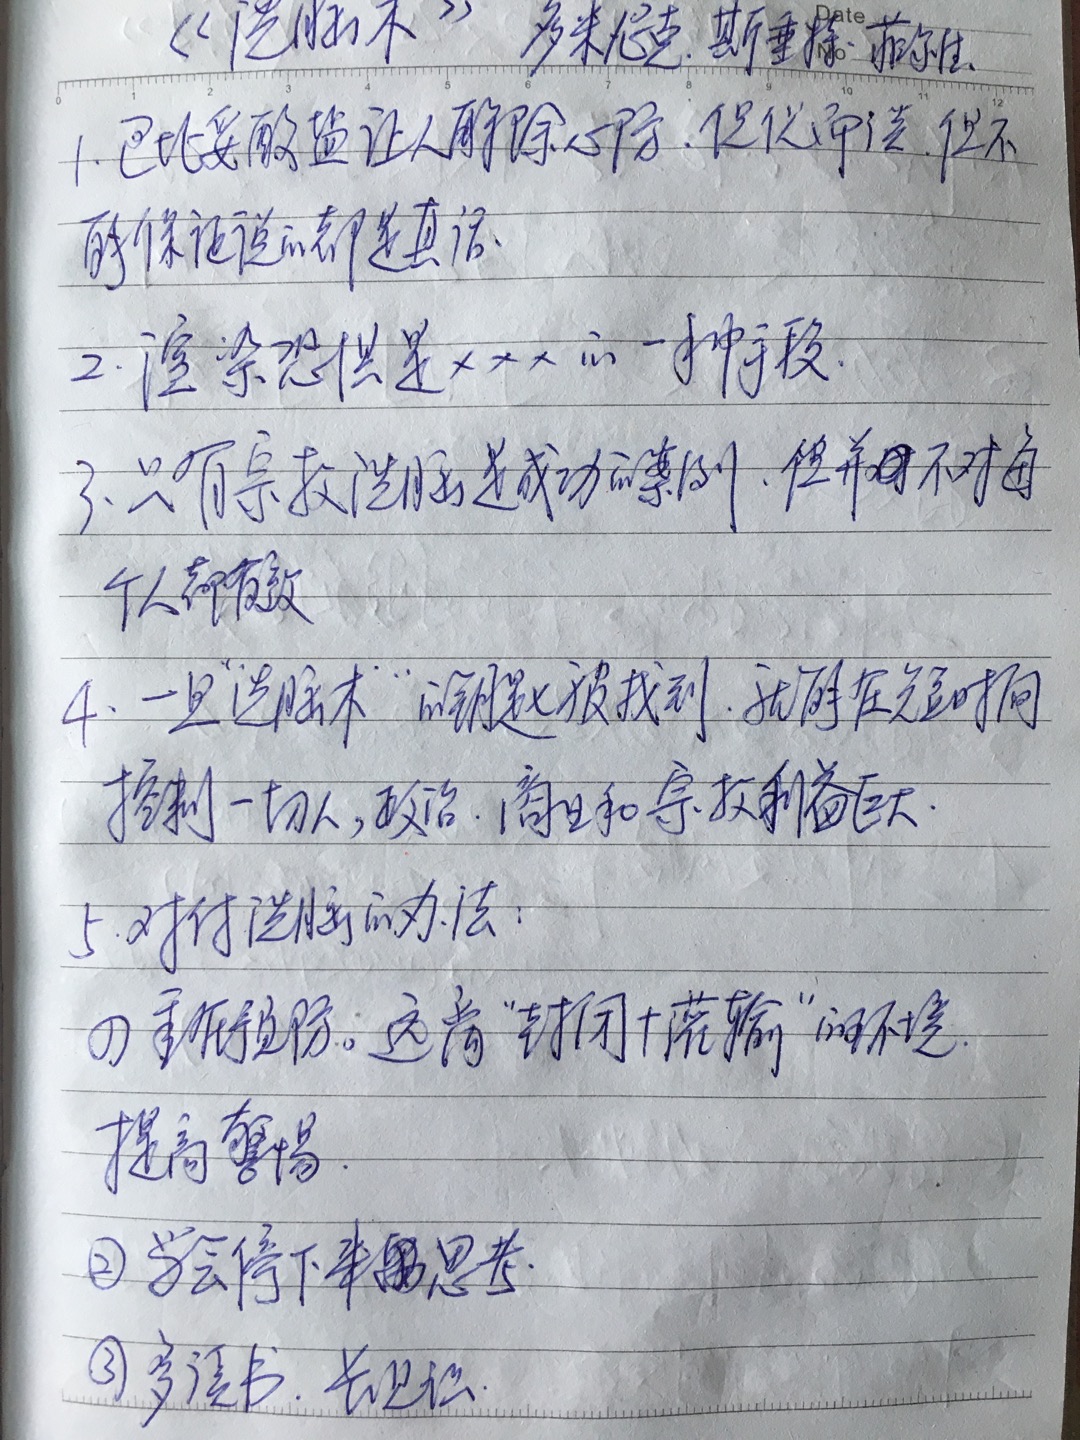 《洗脑术》 多米尼克.斯垂特.菲尔德
Date
No
0 1 2 3 4 5 6 7 8 9 10 11 12
1. 巴比妥酸盐让人解除心防、促使。但不
能保证说的都是真话.
2. 渲染恐惧是×××的一种手段.
3、只有宗教洗脑是成功的案例、但并不对每
个人都有效
4、一旦“洗脑术”的钥匙被找到、就能在短时间
控制一切人,政治、商业和宗教利益巨大.
5.对付洗脑的办法:
① 重在预防。远离“封闭+灌输”的环境.
提高警惕.
② 学会停下来思考.
③ 多读书、长见识.